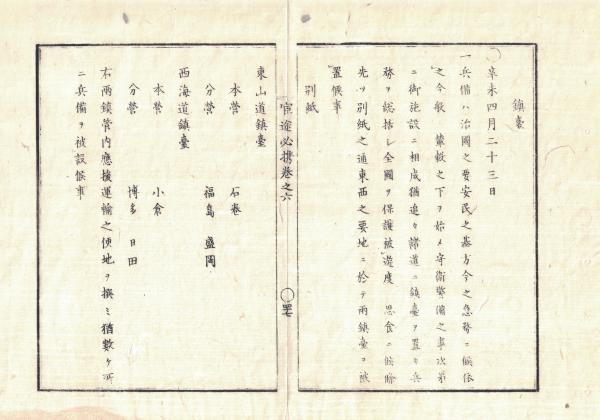 鎮臺
辛未四月二十三日
一兵備ハ治國之要安民之基方今之急務ニ候依
之今般 輦轂之下ヲ始メ守衛警備之事次第
ニ御施設ニ相成猶追々諸道ニ鎮臺ヲ置キ兵
務ヲ総括シ全國ヲ保護被遊度 思食ニ候得
先ツ別紙之通東西之要地ニ於テ両鎮臺ヲ被
置候事
別紙
宦途必携巻之六
四七
東山道鎮臺
本營 石巻
分營 福島 盛岡
西海道鎮臺
本營 小倉
分營 博多 日田
右両鎮管内應援運輸之便地ヲ撰ミ猶數ケ所
ニ兵備ヲ被設候事